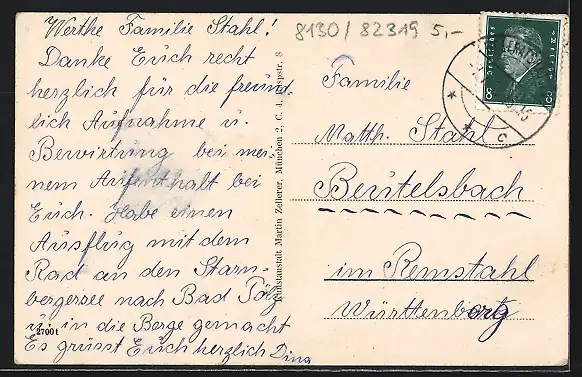 Werthe Familie Stahl!
Danke Euch recht
herzlich für die freund-
lich Aufnahme u.
Bewirtung bei mei-
nem Aufenthalt bei
Euch. Habe einen
Ausflug mit dem
Rad an den Starn-
bergersee nach Bad Tölz
u. in die Berge gemacht
Es grüsst Euch herzlich Dina
2700 t
Kunstanstalt Martin Zellerer, München 2, C. 4, 8
8130/82319 5,-
Familie
Matth. Stahl
Beutelsbach
im Remstahl
Württenberg
Deutsches Reich
8 8